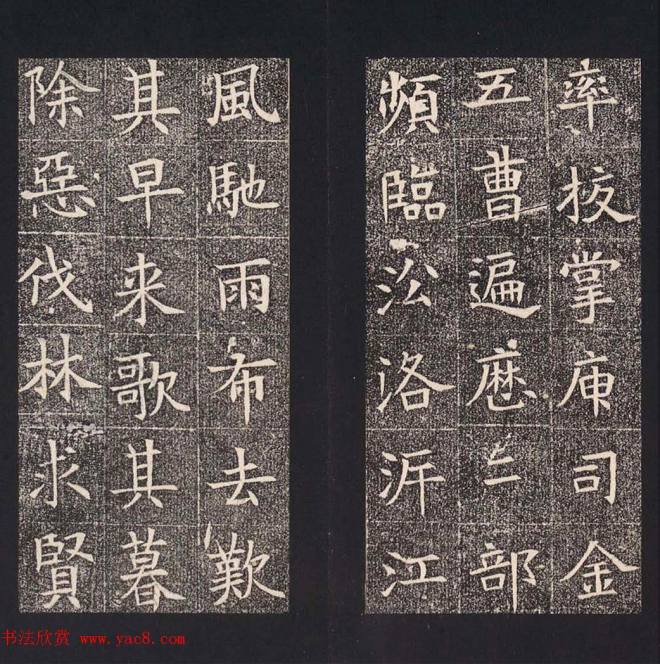 率按掌庾司金
五曹遍歷三部
頻臨沿洛泝江
風馳雨布去歎
其早来歌其暮
除惡伐林求賢
书法欣赏 www.yac8.com